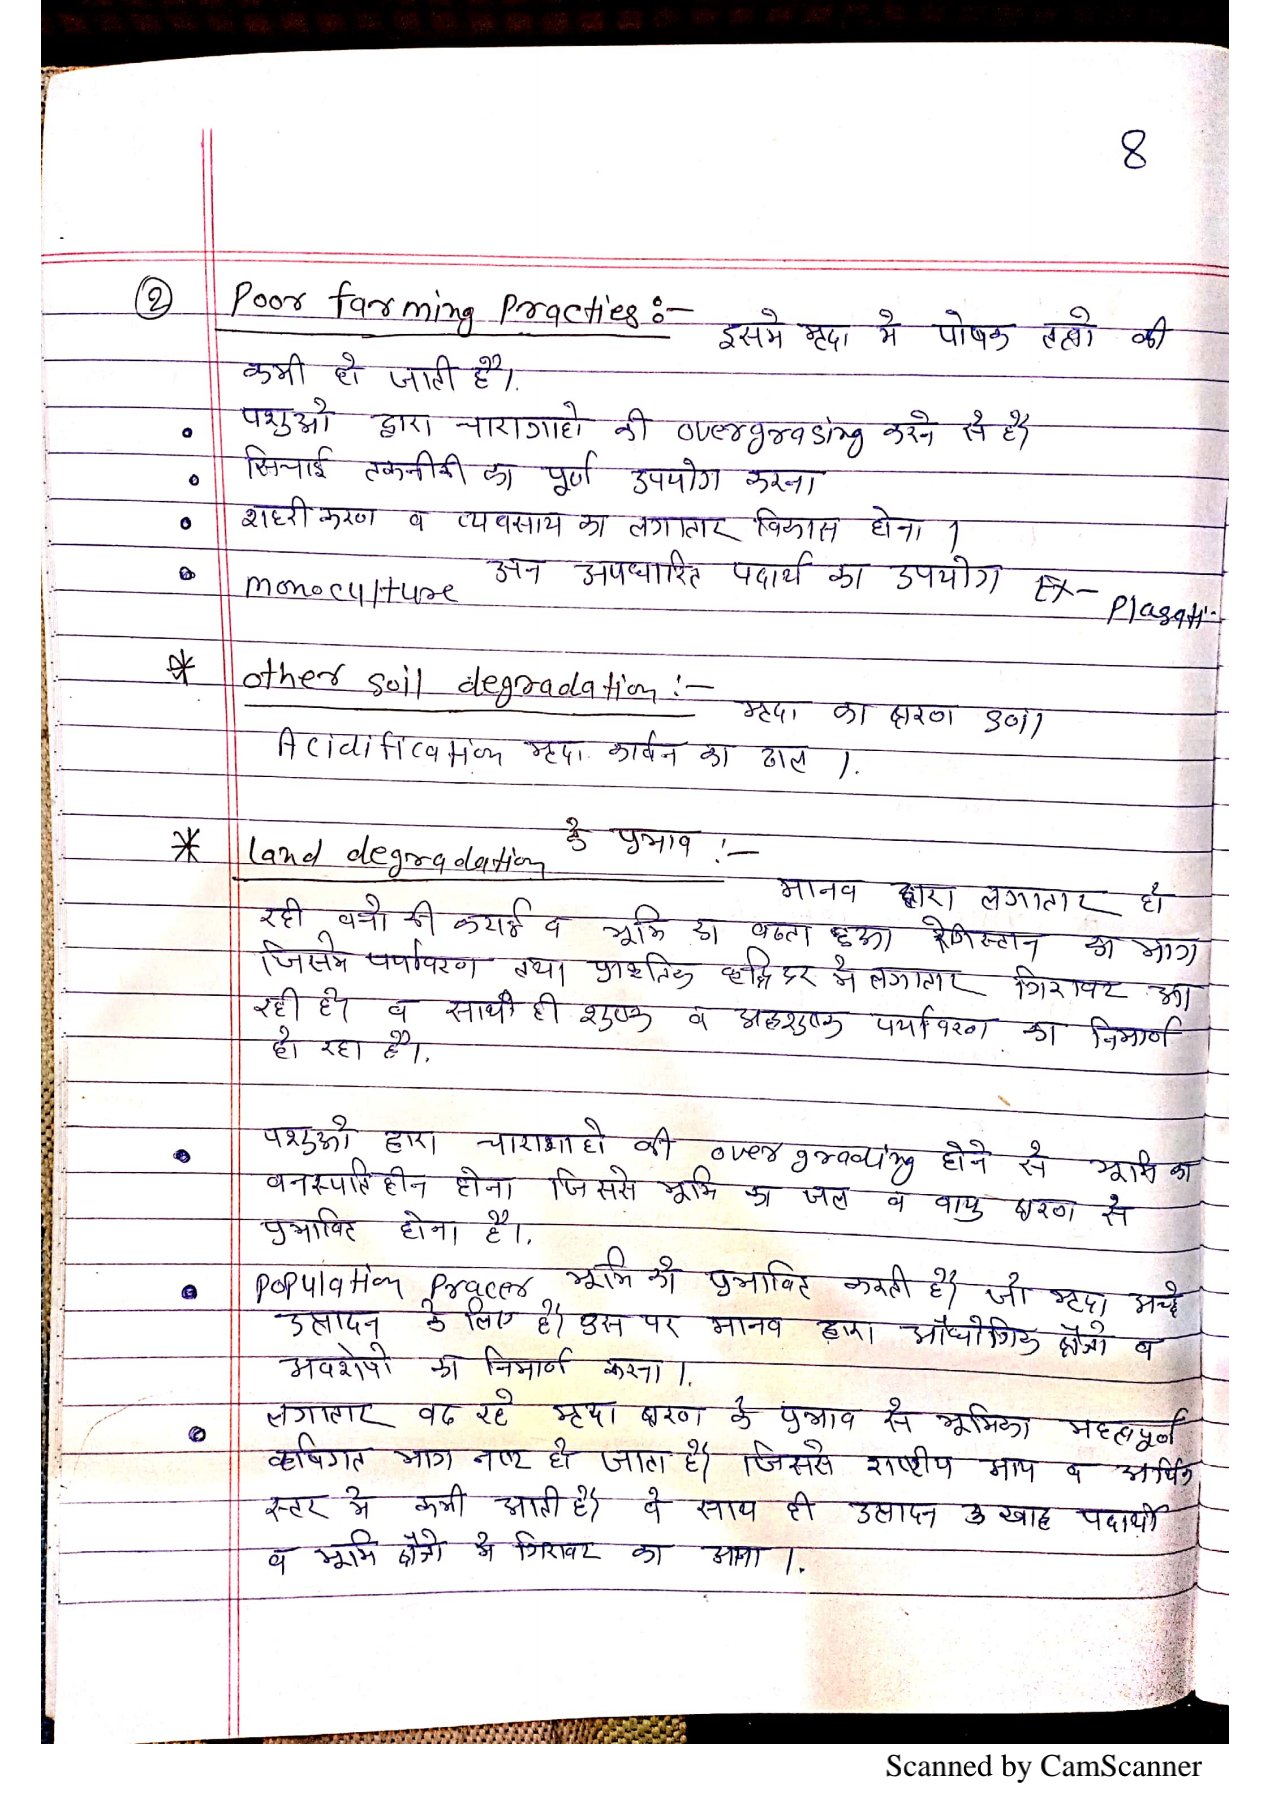 8
② Poor farming Practies :- इसमे मृदा मे पोषक तत्वो की
कमी हो जाती है।.
• पशुओ द्वारा चारागाहो की overgrasing करने से है।
• सिचाई तकनीकी का पूर्ण उपयोग करना
• शहरीकरण व व्यवसाय का लगातार विकास होना ।
• monoculture अन अपघारित पदार्थ का उपयोग Ex- Plasati-
* other soil degradation :- मृदा का क्षरण soil
Acidification मृदा कार्बन का ढाल ।.
* land degradation के प्रभाव :- मानव द्वारा लगातार हो
रही वनो की कटाई व भूमि का बढता हुआ रेगिस्तान का भाग
जिसमे पर्यावरण तथा प्राकृतिक मे लगातार गिरावट आ
रही है। व साथी ही शुष्क व पर्यावरण का निमार्ण
हो रहा है।.
• पशुओ द्वारा चारागाहो की over graving होने से भूमि का
वनस्पतिहीन होना जिससे भूमि का जल व वायु क्षरण से
प्रभावित होना है।.
• Population भूमि को प्रभावित करती है। जो मृदा अच्छे
उत्पादन के लिए है। उस पर मानव द्वारा औधोगिक क्षेत्रो व
अवशेषो का निमार्ण करना ।.
• लगातार बढ रहे मृदा क्षरण के प्रभाव से भूमिका महत्वपूर्ण
कृषिगत भाग नष्ट हो जाता है। जिससे राष्ट्रीय आय व आर्थिक
स्तर मे कमी आती है। वे साथ ही उत्पादन खाद्य पदार्थो
व भूमि क्षेत्रो मे गिरावट का आना ।.
Scanned by CamScanner